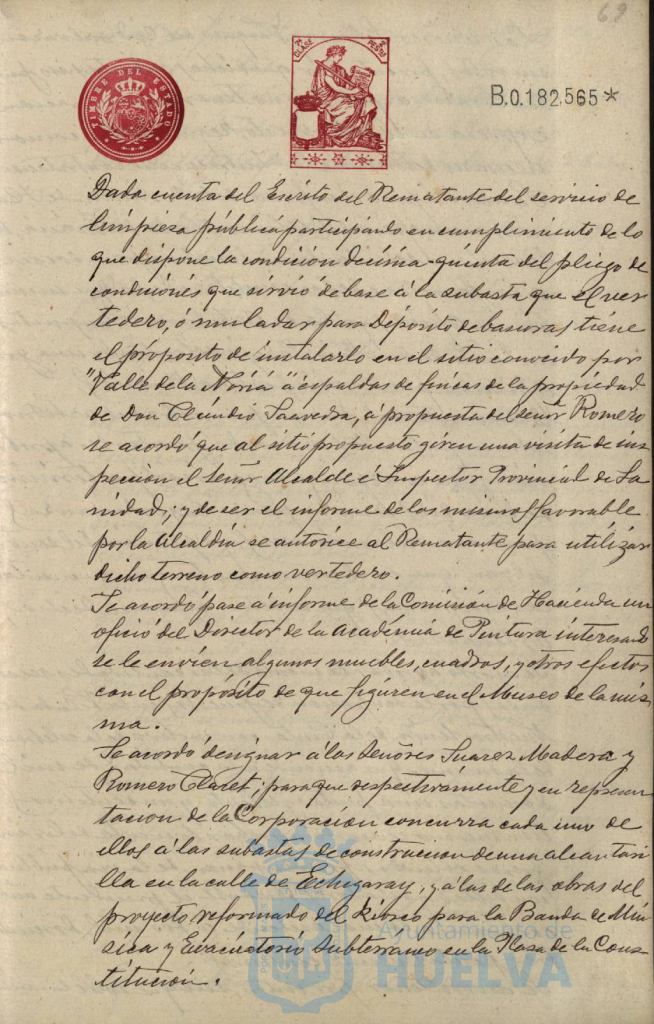 69
TIMBRE DEL ESTADO
7ª CLASE
2 PESETAS
B.0.182,565*
Dada cuenta del Escrito del Rematante del servicio de
limpieza pública participando en cumplimiento de lo
que dispone la condición decima-quinta del pliego de
condiciones que sirvió de base á la subasta que el ver
tedero, ó muladar para Depósito de basuras, tiene
el própósito de instalarlo en el sitio conocido por
"Valle de la Noria" á espaldas de fincas de la propiedad
de Don Claudio Saavedra, á propuesta del señor Romero
se acordó que al sitio propuesto giren una visita de ins
pección el Señor Alcalde é Inspector Provincial de Sa
nidad; y de ser el informe de los mismos favorable
por la Alcaldía se autorice al Rematante para utilizar
dicho terreno como vertedero.
Se acordó pase á informe de la Comisión de Hacienda un
oficio del Director de la Academia de Pintura interesando
se le envien algunos muebles, cuadros, y otros efectos
con el propósito de que figuren en el Museo de la mis
ma.
Se acordó designar á los Señores Suarez Madera y
Romero Claret; para que respectivamente y en represen
tación de la Corporación concurra cada uno de
ellos á las subastas de construcion de una alcantari
lla en la calle de Echegaray, y á las de las obras del
proyecto reformado del Kiosco para la Banda de Mú
sica y Evacuatorio Subterráneo en la Plaza de la Cons
titución.
Ayuntamiento de
HUELVA